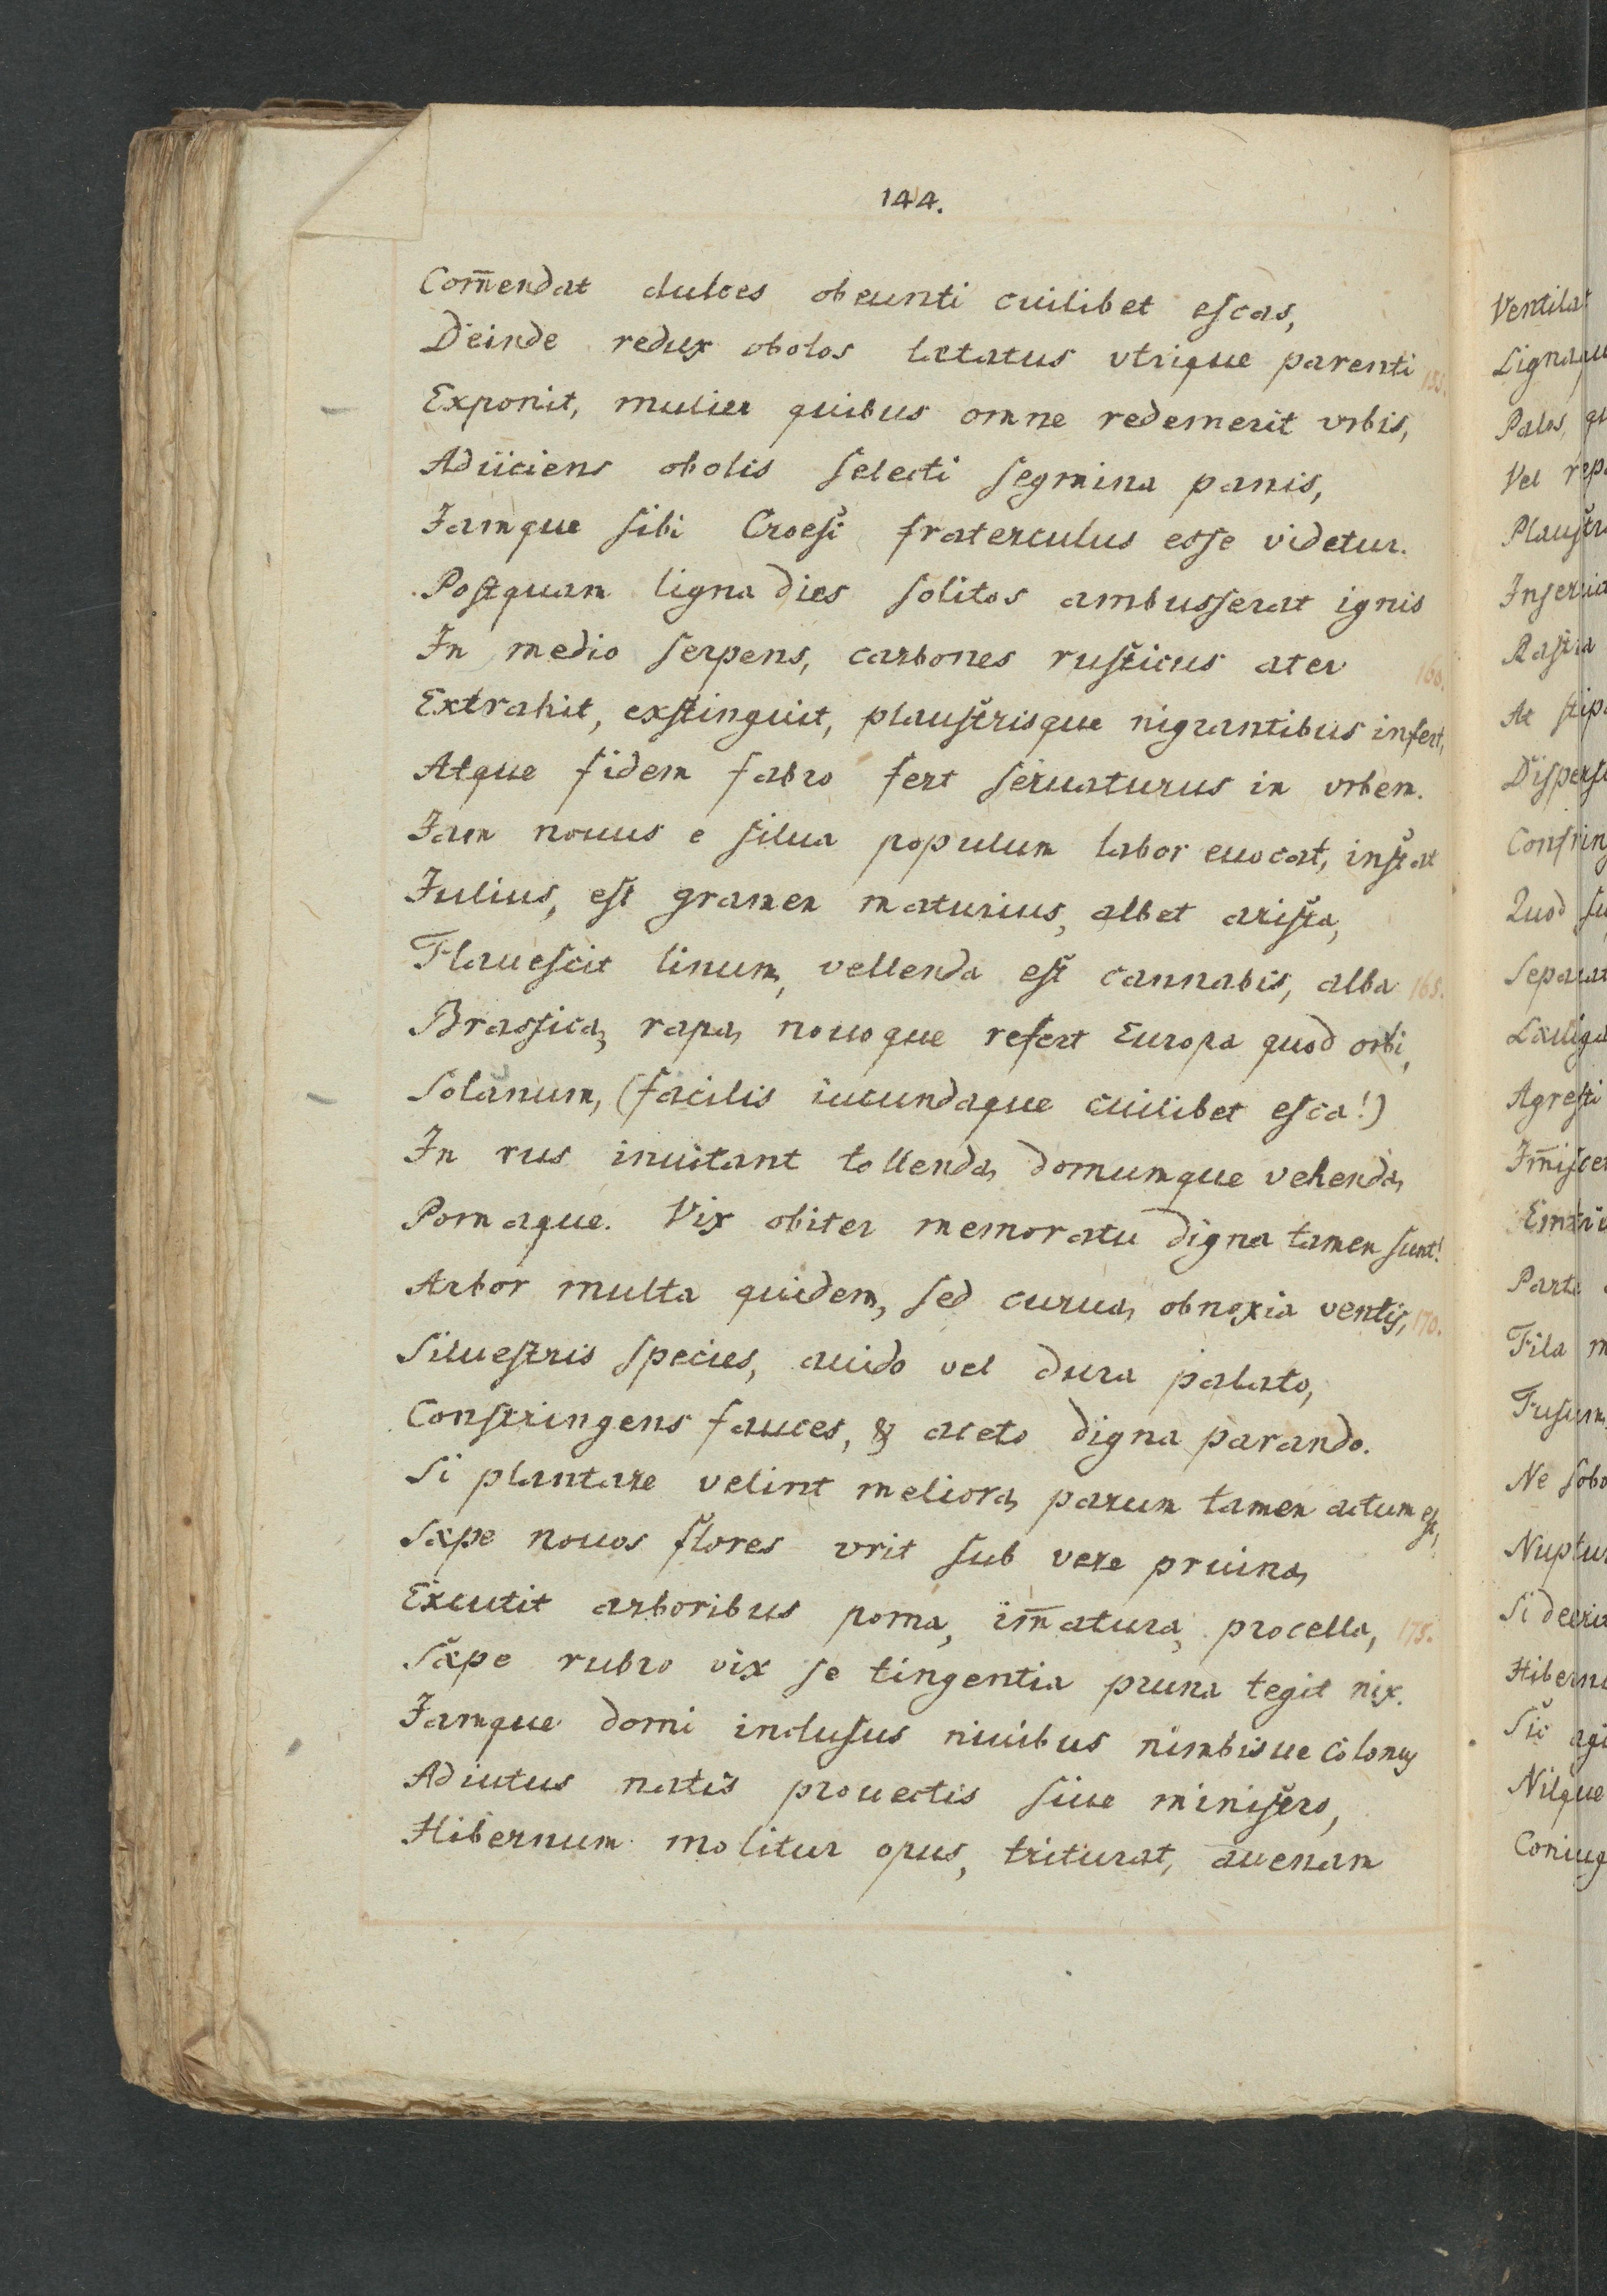 144.
Com̄endat dulces obeunti cuilibet eſcas,
Deinde redux obolos lætatus vtrique parenti 155.
Exponit, mulier quibus omne redemerit vrbis,
Adiiciens obolis ſelecti ſegmina panis,
Jamque ſibi Croeſi fraterculus esſe videtur.
Poſtquam ligna dies ſolitos ambusſerat ignis
In medio ſerpens, carbones ruſticus ater 160.
Extrahit, exſtinguit, plauſtrisque nigrantibus infert,
Atque fidem fabro fert ſeruaturus in vrbem.
Jam nouus e ſilua populum labor euocat, inſtat
Julius, eſt gramen maturius, albet ariſta,
Flaueſcit linum, vellenda eſt cannabis, alba 165.
Brasſica, rapa, nouoque refert Europa quod orbi,
Solanum, (facilis iucundaque cuilibet eſca!)
In rus inuitant tollenda, domumque vehenda,
Pomaque. Vix obiter memoratu digna tamen ſunt!
Arbor multa quidem, ſed curua, obnoxia ventis, 170.
Silueſtris ſpecies, auido vel dura palato,
Conſtringens fauces, & aceto digna parando.
Si plantare velint meliora, parum tamen actum eſt,
Sæpe nouos flores vrit ſub vere pruina,
Excutit arboribus poma, im̄atura, procella, 175.
Sæpe rubro vix ſe tingentia pruna tegit nix.
Jamque domi incluſus niuibus nimbisue colonus
Adiutus natis prouectis ſiue miniſtro,
Hibernum molitur opus, triturat, auenam
Ventilat
Lignaque
Palos, qu
Vel repa
Plauſtra
Inſeruia
Raſtra
At ſtipa
Diſperſa
Confring
Quod ſu
Separat
Læuiga
Agreſti
Im̄iſcet
Parte
Fila m
Fuſum,
Ne ſobo
Nuptu
Hibern
Sic agi
Nilque
Coniug